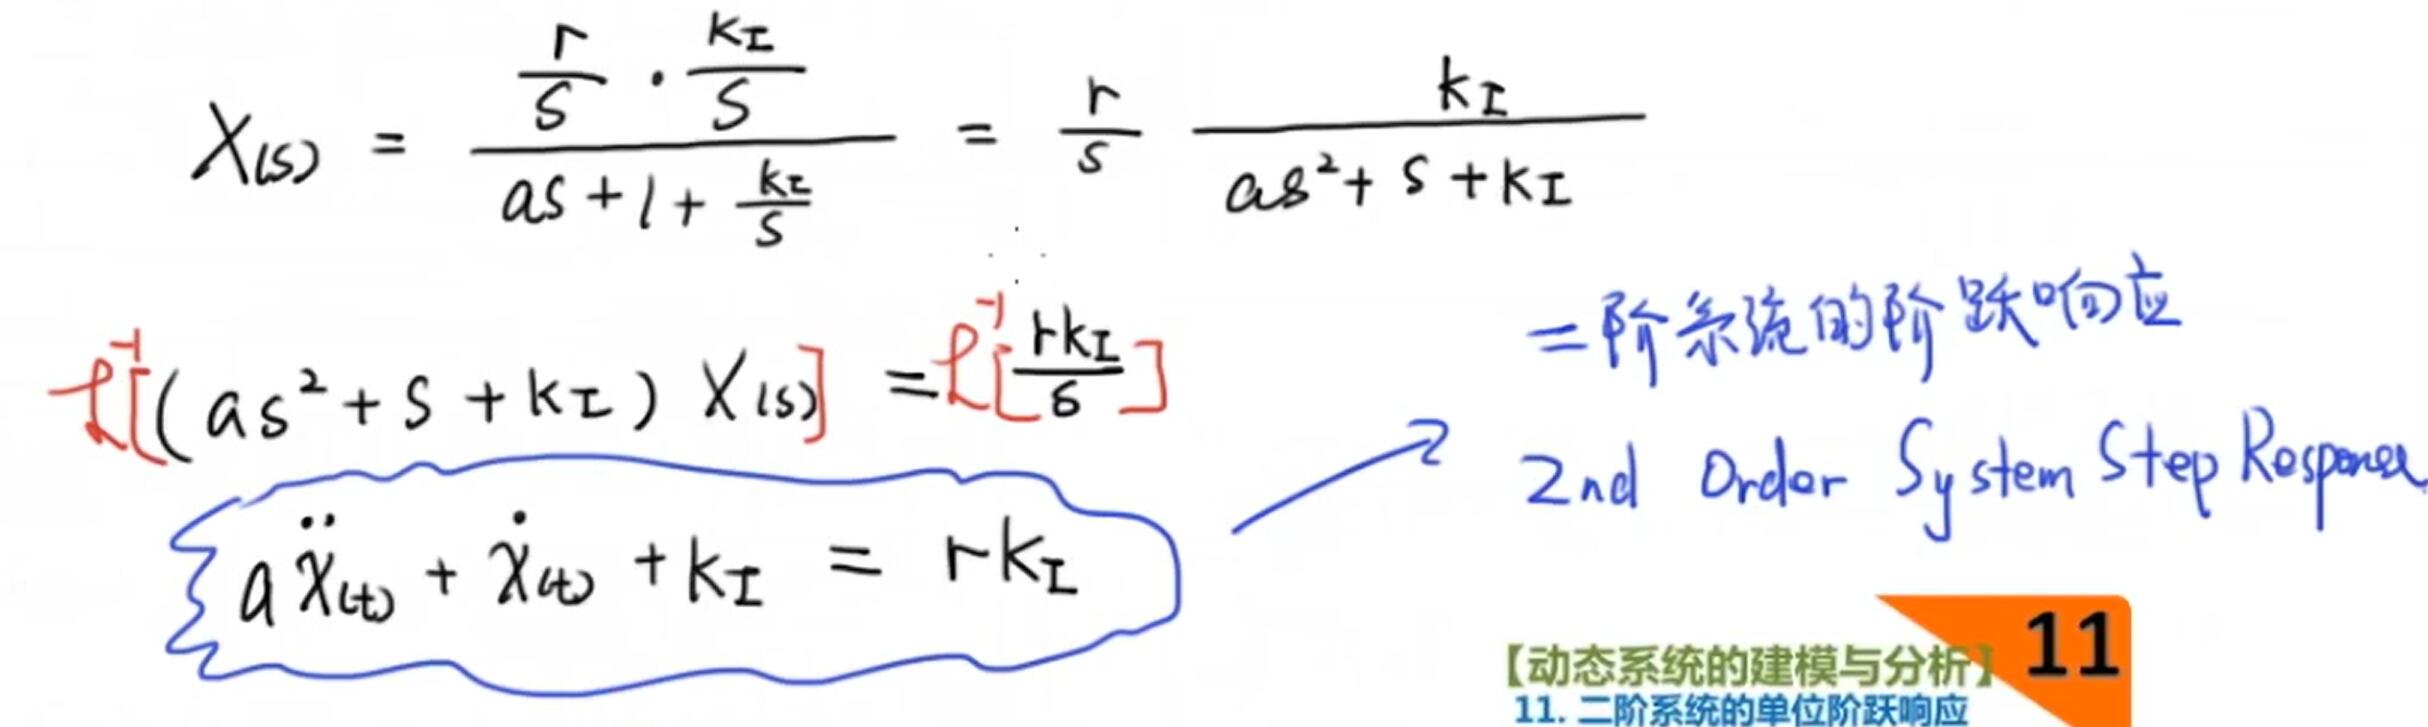 X(s) = (r/s · kI/s) / (as + 1 + kI/s) = r/s kI / (as² + s + kI)
ℒ⁻¹[(as² + s + kI) X(s)] = ℒ⁻¹[rkI/s]
aẍ(t) + ẋ(t) + kI = rkI
二阶系统的阶跃响应
2nd Order System Step Response
11
【动态系统的建模与分析】
11. 二阶系统的单位阶跃响应